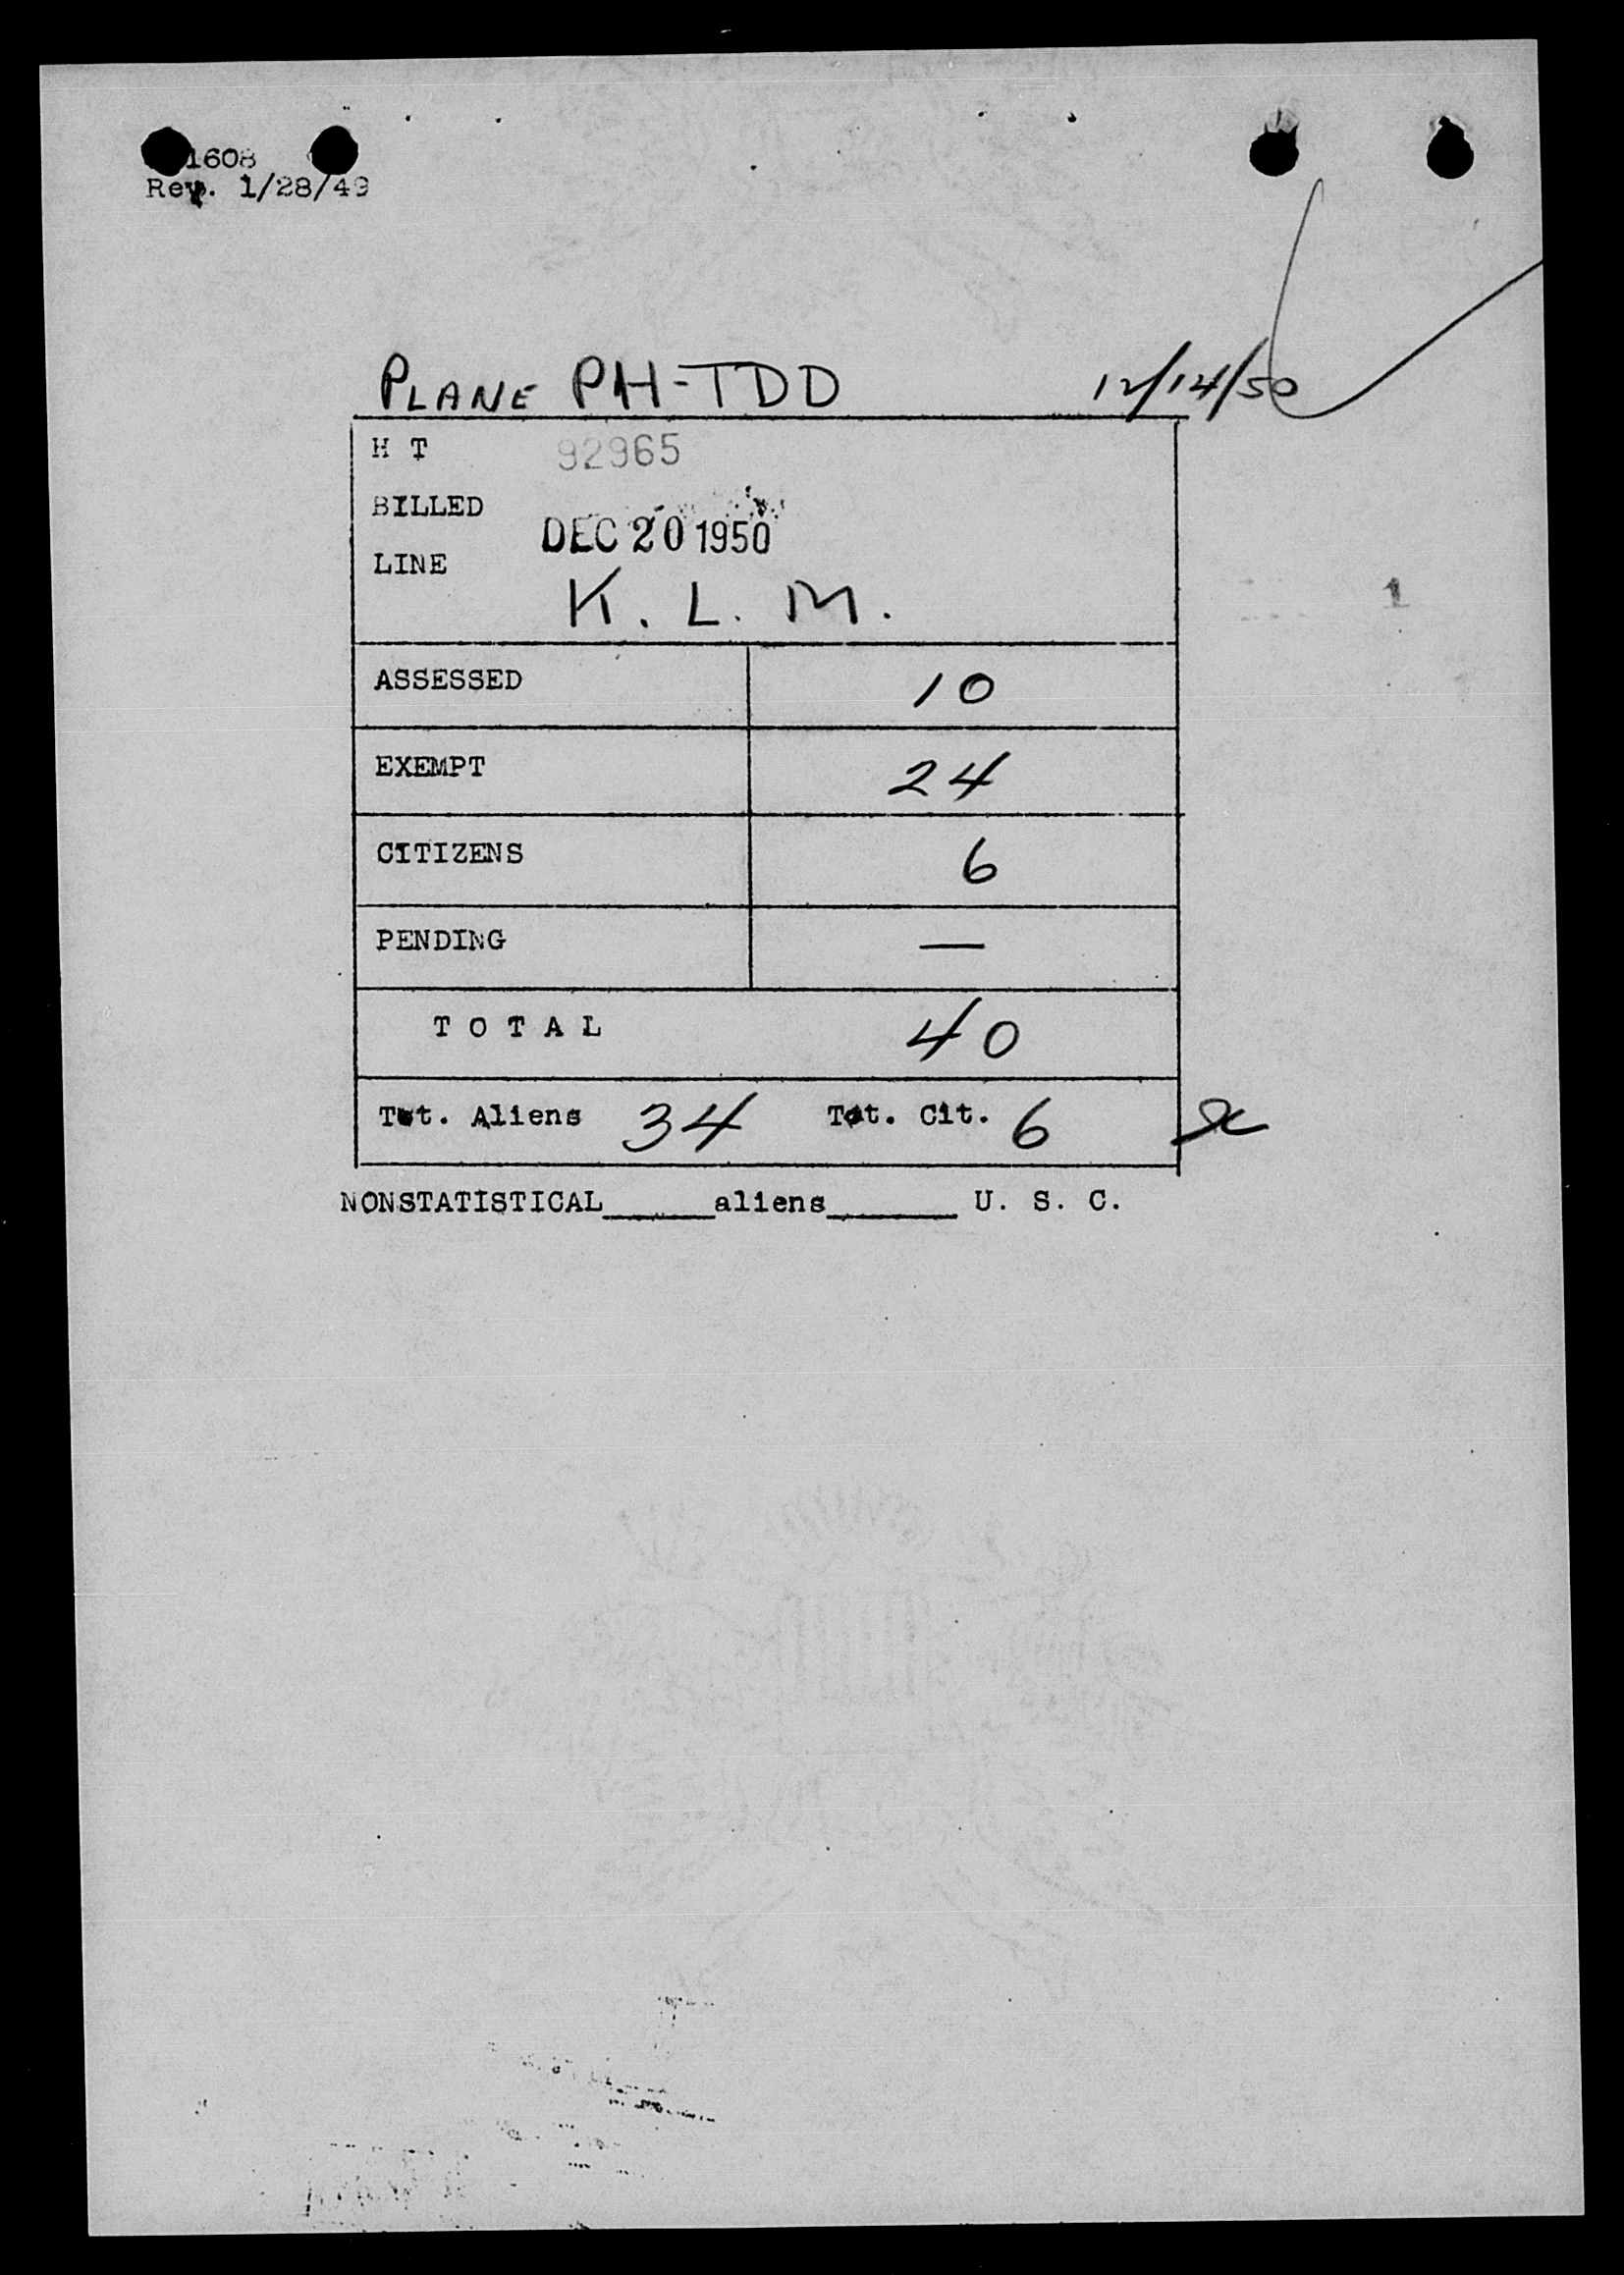 1608
Rev. 1/28/49
PLANE PH-TDD 12/14/50
H T 92965
BILLED
DEC 20 1950
LINE
K. L. M.
ASSESSED 10
EXEMPT 24
CITIZENS 6
PENDING —
T O T A L 40
Tot. Aliens 34 Tot. Cit. 6
NONSTATISTICAL______aliens_______ U. S. C.
1